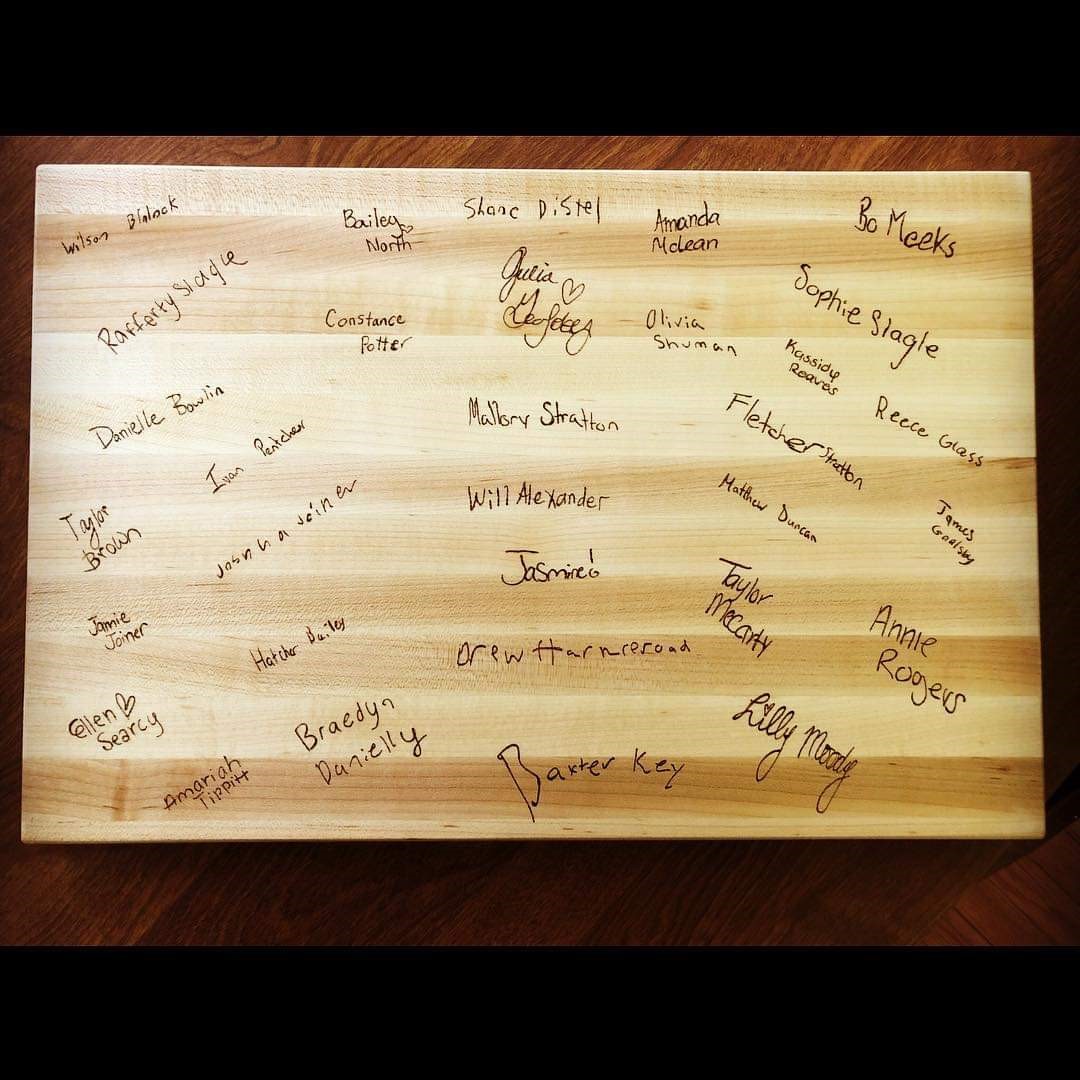 Wilson Blalock
Bailey
North
Shane Distel
Amanda
McLean
Bo Meeks
Rafferty Slagle
Julia
Sophie Slagle
Constance
Potter
Olivia
Shuman
Kassidy
Reaves
Danielle Bowlin
Mallory Stratton
Fletcher Stratton
Reece Glass
Ivan
Taylor
Brown
Joiner
Will Alexander
Matthew Duncan
James
Jasmine
Jamie
Joiner
Hatcher Bailey
Drew
Taylor
McCarty
Annie
Rogers
Ellen
Searcy
Braedyn
Danielly
Lilly Moody
Amariah
Tippitt
Baxter Key